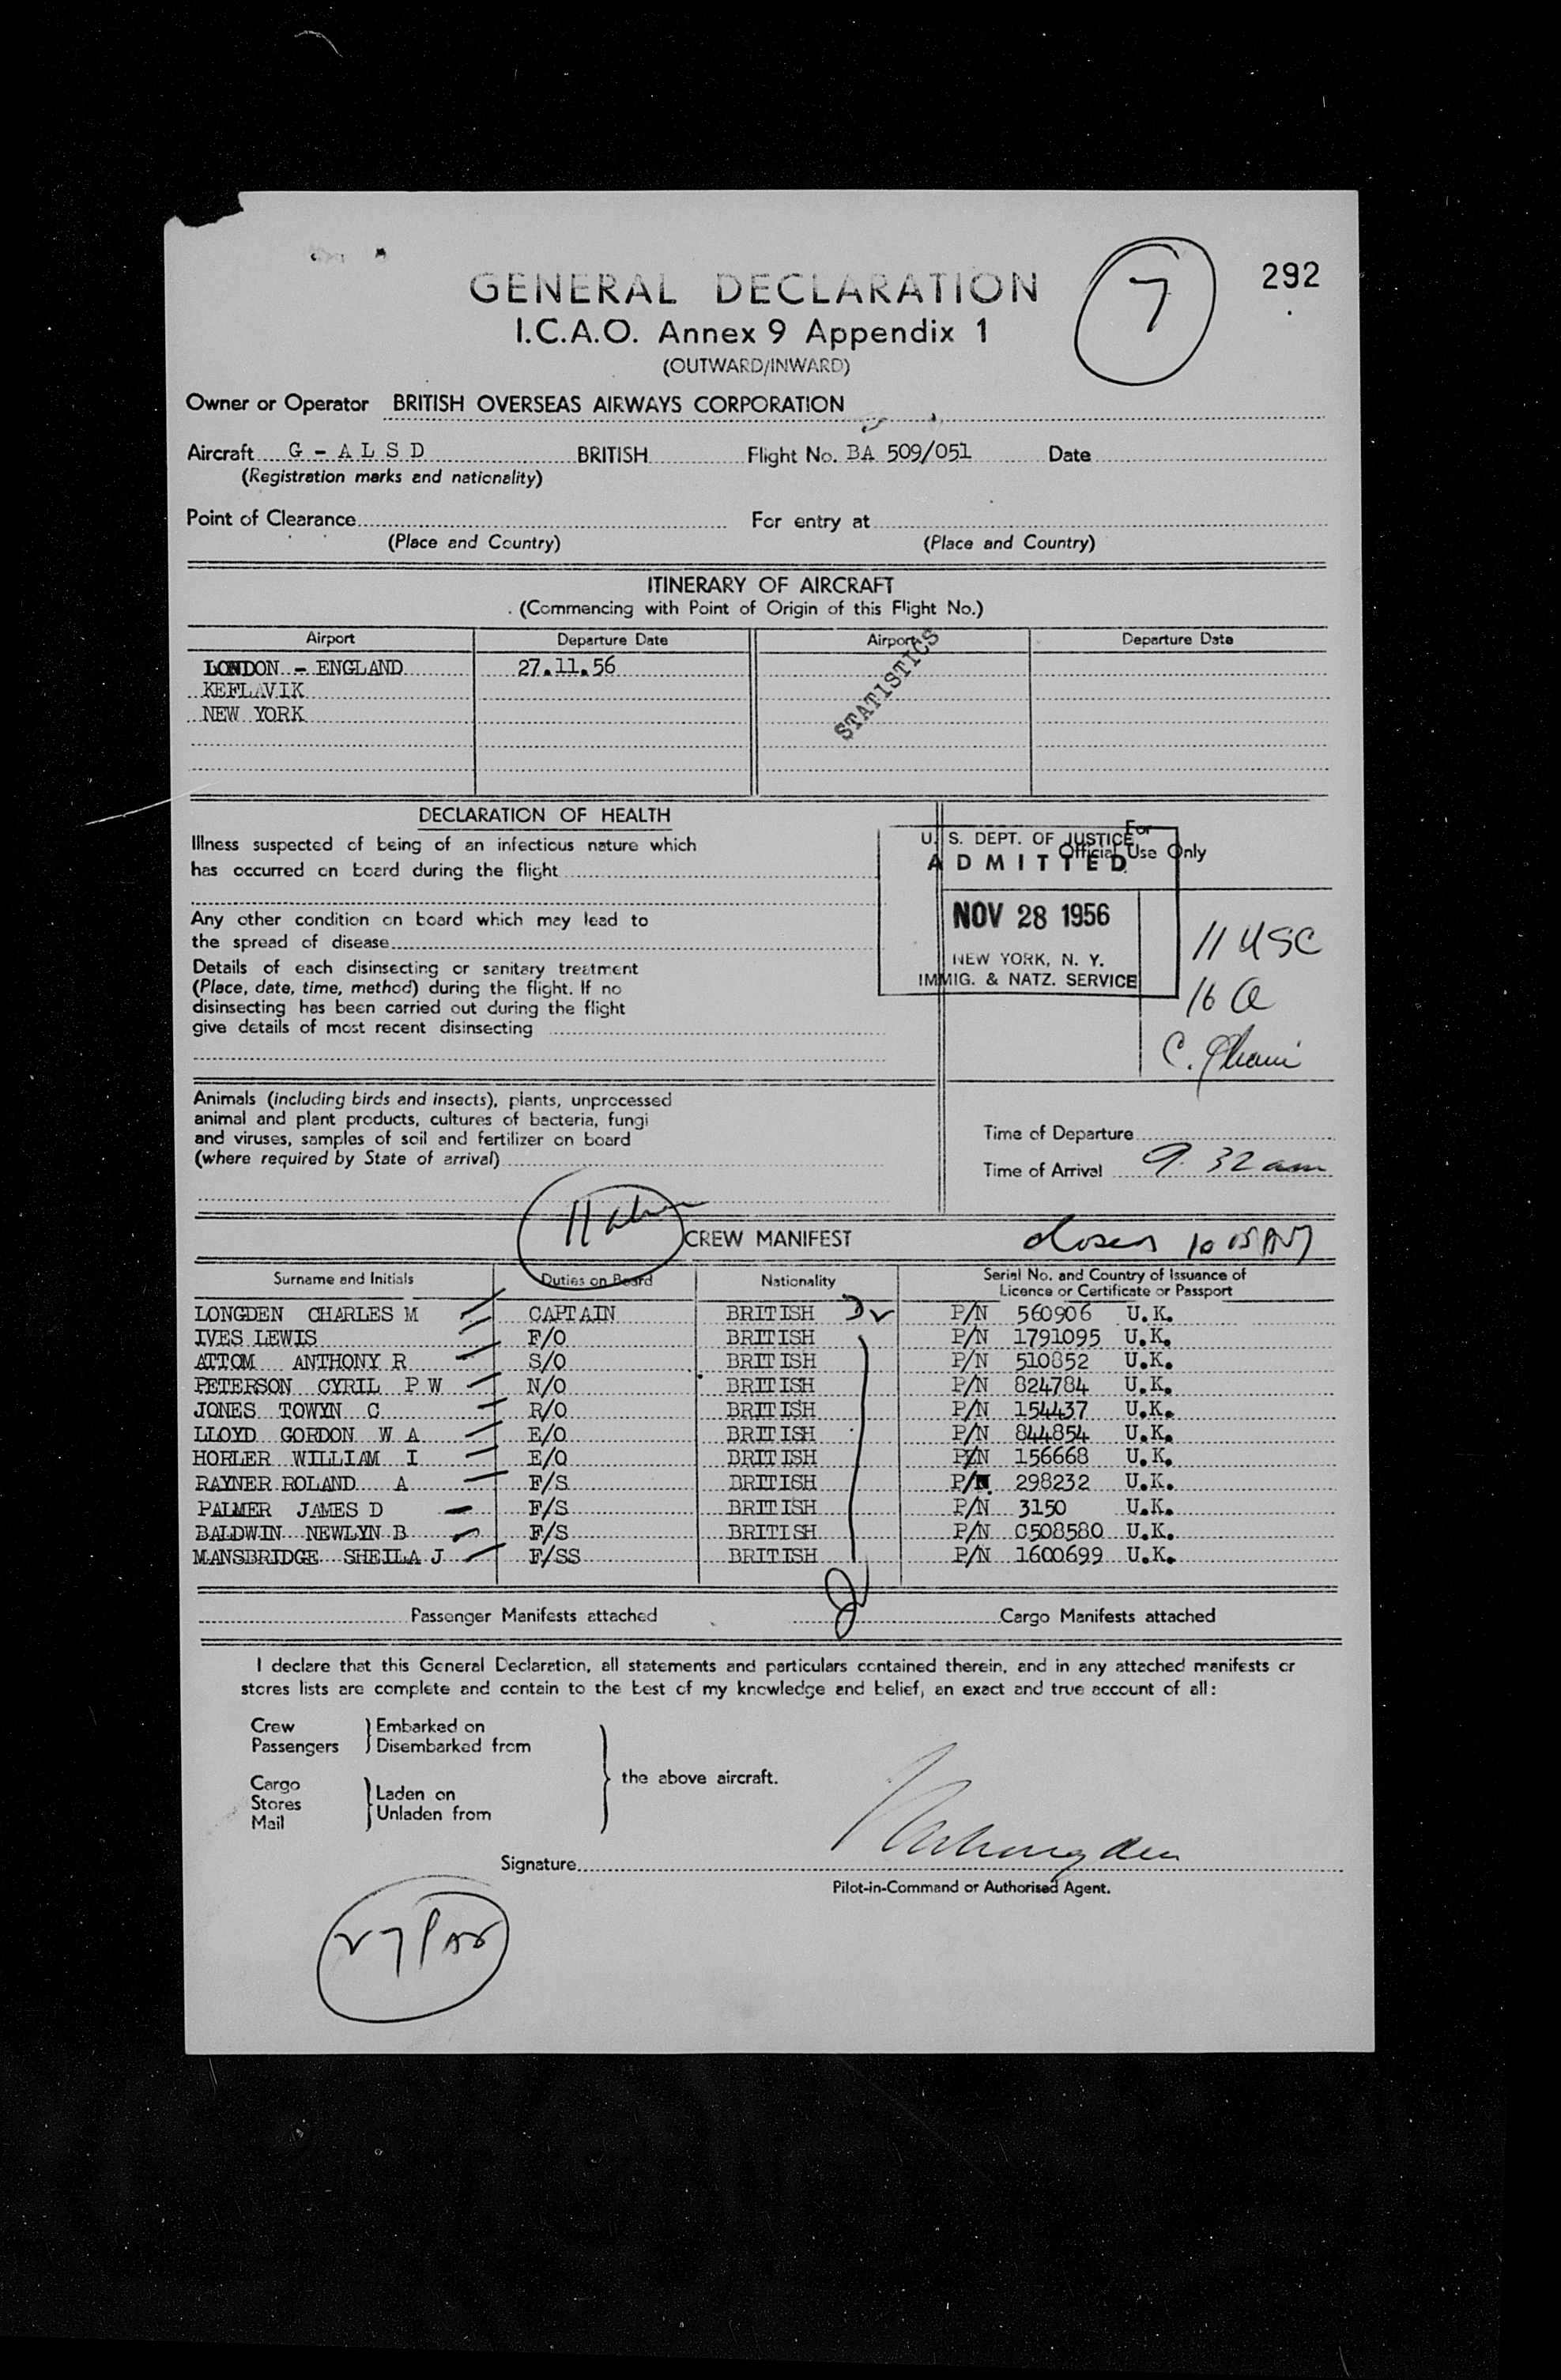 292
7
GENERAL DECLARATION
I.C.A.O. Annex 9 Appendix 1
(OUTWARD/INWARD)
Owner or Operator BRITISH OVERSEAS AIRWAYS CORPORATION
Aircraft G - A L S D BRITISH Flight No. BA 509/051 Date
(Registration marks and nationality)
Point of Clearance For entry at
(Place and Country) (Place and Country)
ITINERARY OF AIRCRAFT
(Commencing with Point of Origin of this Flight No.)
Airport Departure Date Airport Departure Date
LONDON - ENGLAND 27.11.56
KEFLAVIK
NEW YORK
STATISTICS
DECLARATION OF HEALTH
Illness suspected of being of an infectious nature which
has occurred on board during the flight
Any other condition on board which may lead to
the spread of disease
Details of each disinsecting or sanitary treatment
(Place, date, time, method) during the flight. If no
disinsecting has been carried out during the flight
give details of most recent disinsecting
For
Official Use Only
U. S. DEPT. OF JUSTICE
ADMITTED
NOV 28 1956
NEW YORK, N. Y.
IMMIG. & NATZ. SERVICE
11 USC
16 A
C.
Animals (including birds and insects), plants, unprocessed
animal and plant products, cultures of bacteria, fungi
and viruses, samples of soil and fertilizer on board
(where required by State of arrival)
Time of Departure
Time of Arrival 9.32 am
11
CREW MANIFEST
closed 10 05 AM
Surname and Initials Duties on Board Nationality Serial No. and Country of Issuance of
Licence or Certificate or Passport
LONGDEN CHARLES M CAPTAIN BRITISH P/N 560906 U.K.
IVES LEWIS F/O BRITISH P/N 1791095 U.K.
ATTOM ANTHONY R S/O BRITISH P/N 510852 U.K.
PETERSON CYRIL P W N/O BRITISH P/N 824784 U.K.
JONES TOWYN C R/O BRITISH P/N 154437 U.K.
LLOYD GORDON W A E/O BRITISH P/N 844854 U.K.
HORLER WILLIAM I E/O BRITISH P/N 156668 U.K.
RAYNER ROLAND A F/S BRITISH P/N 298232 U.K.
PALMER JAMES D F/S BRITISH P/N 3150 U.K.
BALDWIN NEWLYN B F/S BRITISH P/N C508580 U.K.
MANSBRIDGE SHEILA J F/SS BRITISH P/N 1600699 U.K.
Passenger Manifests attached Cargo Manifests attached
I declare that this General Declaration, all statements and particulars contained therein, and in any attached manifests or
stores lists are complete and contain to the best of my knowledge and belief, an exact and true account of all:
Crew
Passengers
Embarked on
Disembarked from
Cargo
Stores
Mail
Laden on
Unladen from
the above aircraft.
Signature
Pilot-in-Command or Authorised Agent.
27 Pas